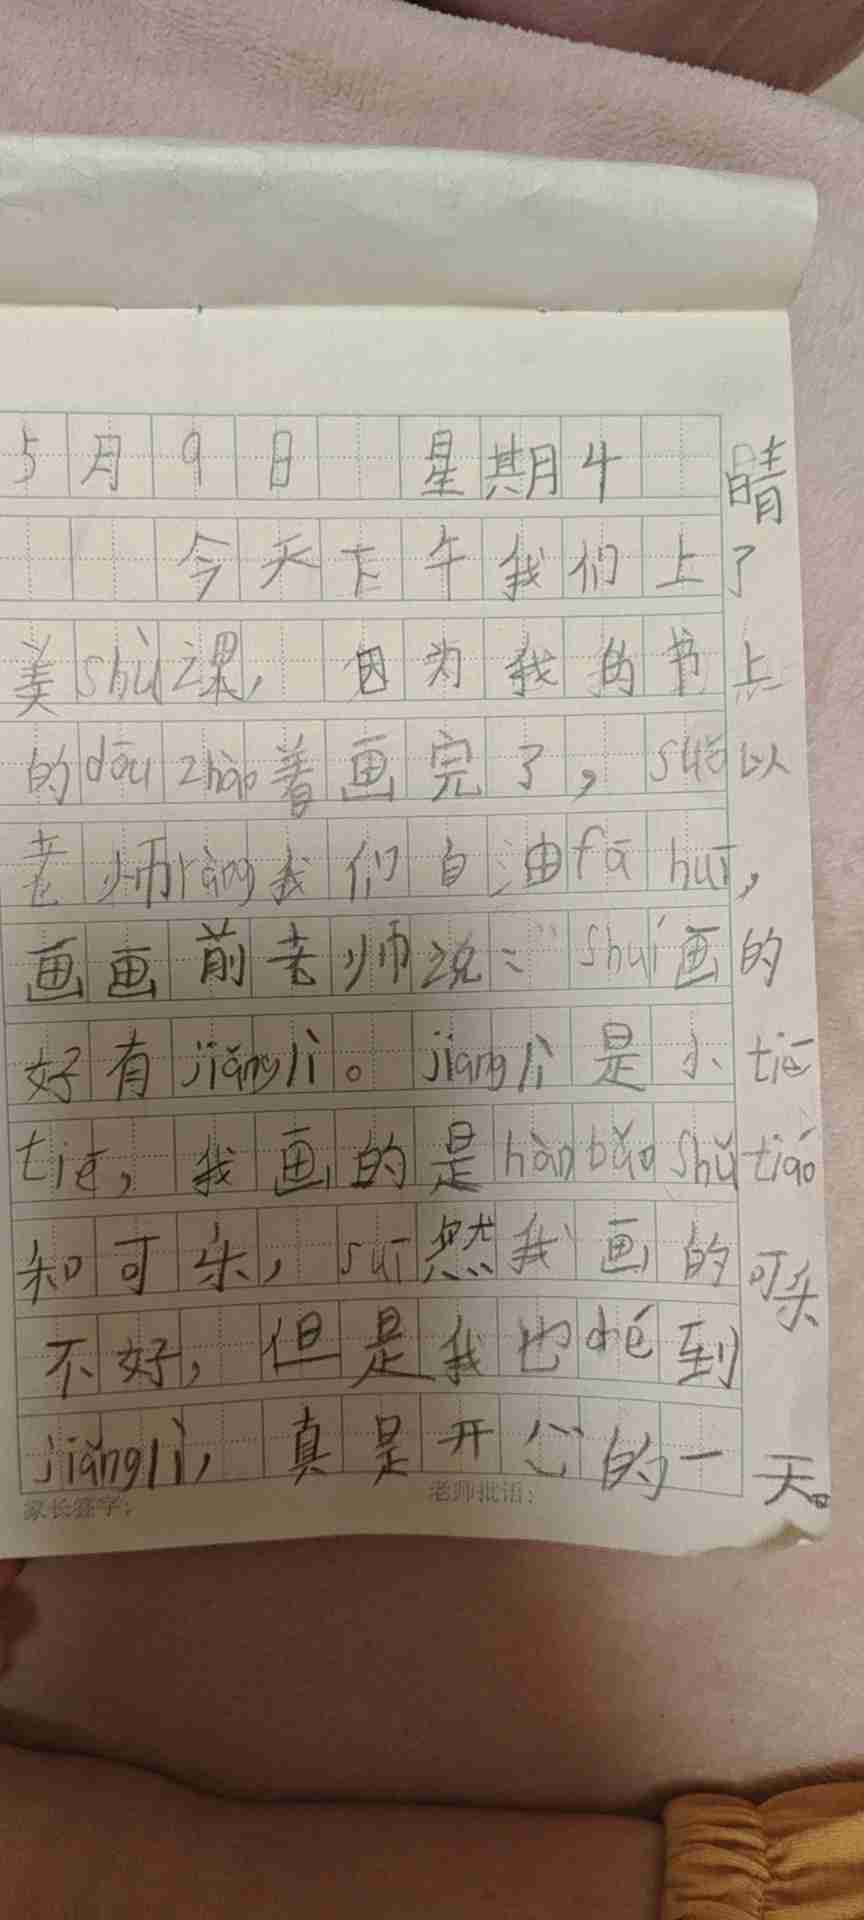 5月9日 星期4 晴
今天下午我们上了
美shù课, 因为我的书上
的dōu zhào着画完了, suǒ以
老师ràng我们自油fā huī,
画画前老师说:“shuí画的
好有jiǎnglì。jiǎnglì是小tiē
tiē, 我画的是hànbǎo shǔtiáo
和可乐, suī然我画的可乐
不好, 但是我也dé到
jiǎnglì, 真是开心的一天。
家长签字: 老师批语: